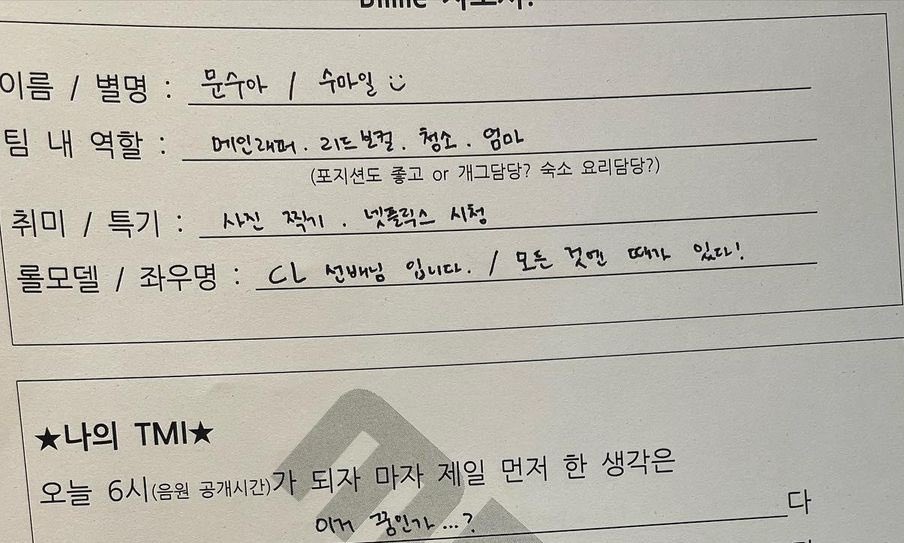 이름 / 별명 : 문수아 / 수마일
팀 내 역할 : 메인래퍼. 리드보컬. 청소. 엄마
(포지션도 좋고 or 개그담당? 숙소 요리담당?)
취미 / 특기 : 사진 찍기. 넷플릭스 시청
롤모델 / 좌우명 : CL 선배님 입니다. / 모든 것엔 때가 있다!
★나의 TMI★
오늘 6시(음원 공개시간)가 되자 마자 제일 먼저 한 생각은
이거 꿈인가...? 다